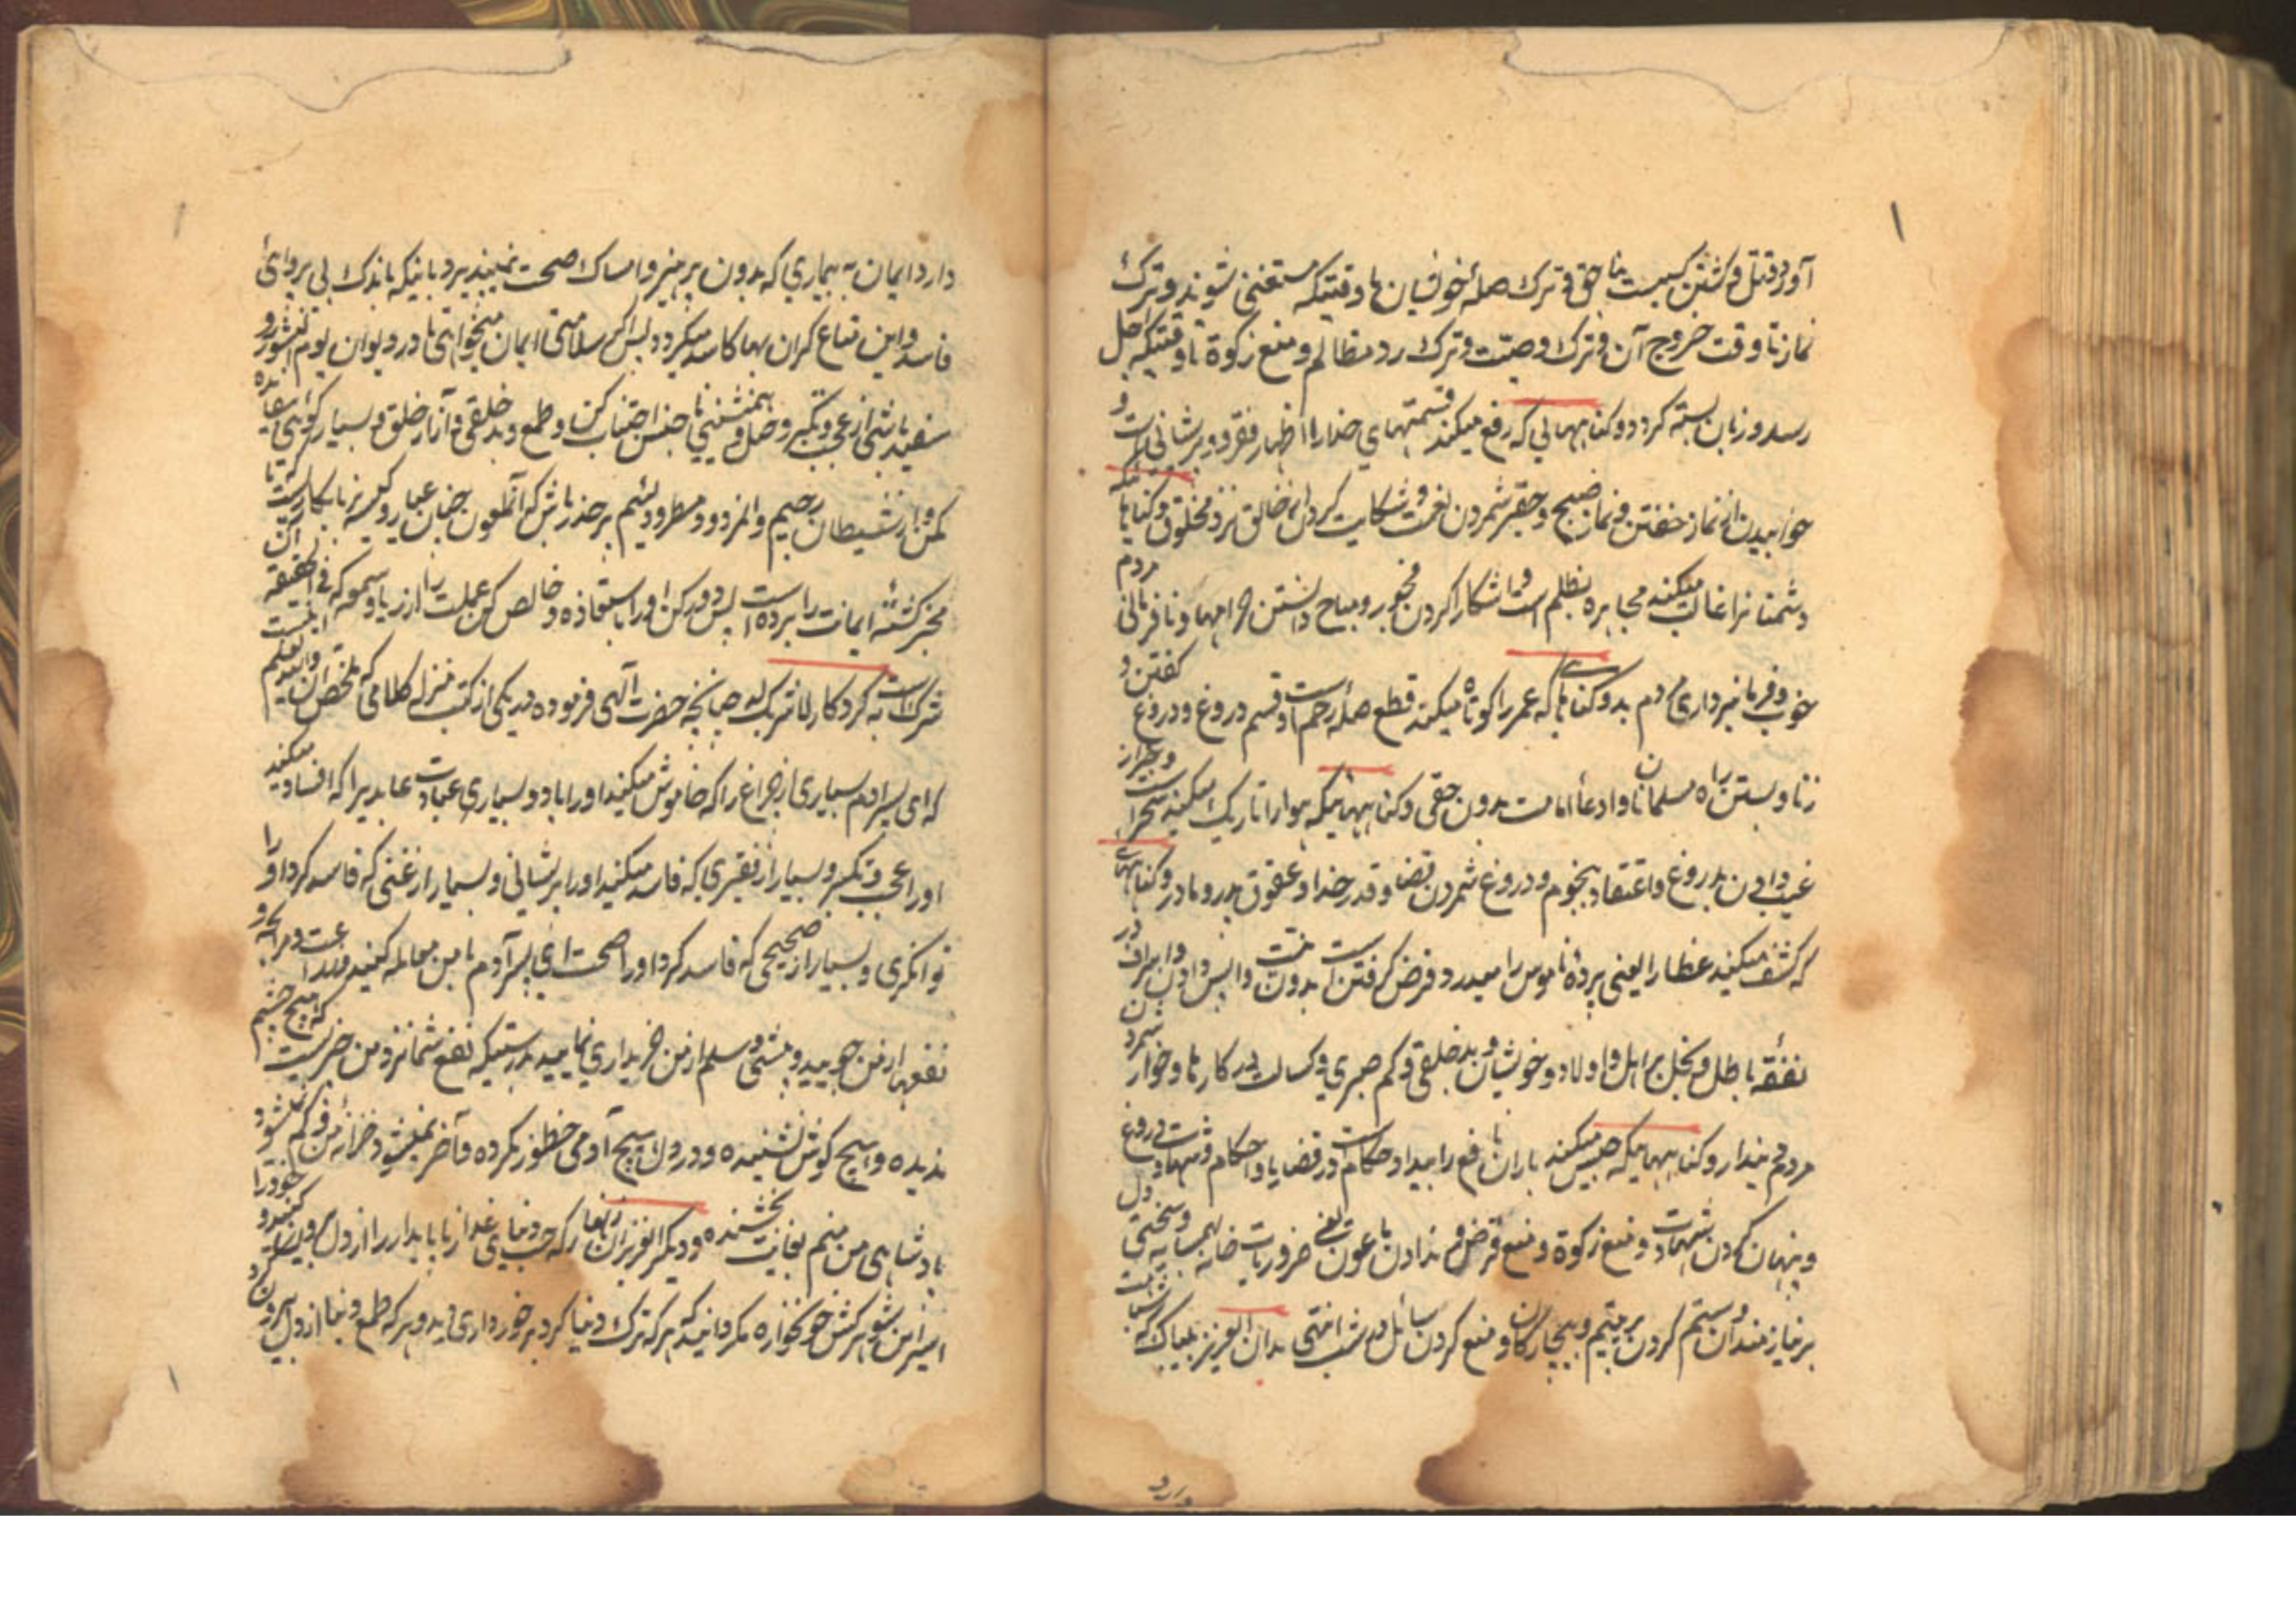 آورد و قتل و کشتن کسیست بناحق و ترک صلهٔ خویشان تا وقتیکه مستغنی شوند و ترک
نماز تا وقت خروج آن و ترک وصیت و ترک رد مظالم و منع زکوة تا وقتیکه اجل
رسد و زبان بسته کردد و کناههائی که رفع میکند قسمتهای خدا را اظهار فقر و پریشانی است و
خوابیدن از نماز خفتن و نماز صبح و حقیر شمردن نعمت و شکایت کردن از خالق نزد مخلوق و کناهانیکه
دشمنانرا غالب میکند مجاهره بظلم است و آشکارا کردن فجور و مباح دانستن حرامها و نافرمانی مردم
خوب و فرمانبرداری مردم بد و کناهانیکه عمر را کوتاه میکند قطع صلهٔ رحم است و قسم دروغ و دروغ کفتن و
زنا و بستن راه مسلمانان و ادعأ امامت بدون حقی و کناههائیکه هوا را تاریک میکند سحر است و خبر از
غیب دادن بدروغ و اعتقاد بنجوم و دروغ شمردن قضا و قدر خدا و عقوق پدر و مادر و کناههای
که کشف میکنید غطا را یعنی پردهٔ ناموس را میدرد قرض کرفتن است بدون نیت واپس دادن و اسراف در
نفقهٔ باطل و بخل بر اهل و اولاد و خویشان و بد خلقی و کم صبری و کسالت در کارها و خوار شمردن
مردم دیندار و کناههائیکه حبس میکند باران نافع را بیداد حکام است در قضایا و احکام و شهادت دروغ
و پنهان کردن شهادت و منع زکوة و منع قرض و ندادن ماعون یعنی ضروریات خانه بهمسایه و سختی دل
بر نیازمندان و ستم کردن بر یتیم و بیچارکان و منع کردن سائل در شب انتهی بدان ایعزیز بیباک که شباهت
دارد
دارد ایمان به بیماری که بدون پرهیز و امساک صحت نمیپذیرد بانیکه باندک بی پروائی
فاسد و این متاع کران بها کاسد میکردد پس اکر سلامتی ایمان میخواهی تا در دیوان یوم النشور رو
سفید باشی از عجب و تکبر و همنشینی نا جنس اجتناب کن و طمع و بد خلقی و آزار خلق و بسیار کوئی بیفایده
کمتر کن و از شیطان رجیم والمردود مطرود لئیم بر حذر باش که آنملعون چنان عیار و کیسه بر نابکار است که تا
مخبر کشتهٔ ایمانت را برده است پس دور کن او را باستعاذه و خالص کن عملت را از ریا و سمعه که فی الحقیقه آن
شرک است به کردکار لا شریک له چنانچه حضرت آلهی فرموده در یکی از کتب منزله کلامی که ملخص آن اینست والله یعلم
که ای پسر آدم بسیاری از چراغ را که خاموش میکنید او را باد و بسیاری عبادت عابد یرا که افساد میکنید
او را عجب و تکبر و بسیار از فقیری که فاسد میکنید او را پریشانی و بسیار از غنی که فاسد کرد او را
توانکری و بسیار از صحیحی که فاسد کرد او را صحت ای پسر آدم با من معامله کنید و مرابحه و
نفعها از من جویید و بیشی و سلم از من خریداری نمایید بدرستیکه نفع شما نزد من چیزیست که هیچ چشم
ندیده و هیچ کوش نشنیده و در دل هیچ آدمی خطور نکرده و آخر نمیشود خزانهٔ من و کم نشود
پادشاهی من منم بغایت بخشنده و دیکر ایعزیزان زنهار که حب دنیای غدار ناپایدار را از دل بیرون کنید و خود را
اسیر این شوهر کش خونخواره مکردانید که هرکه ترک دنیا کرد برخورداری دید و هر که طمع دنیا از دل بیرون کرد